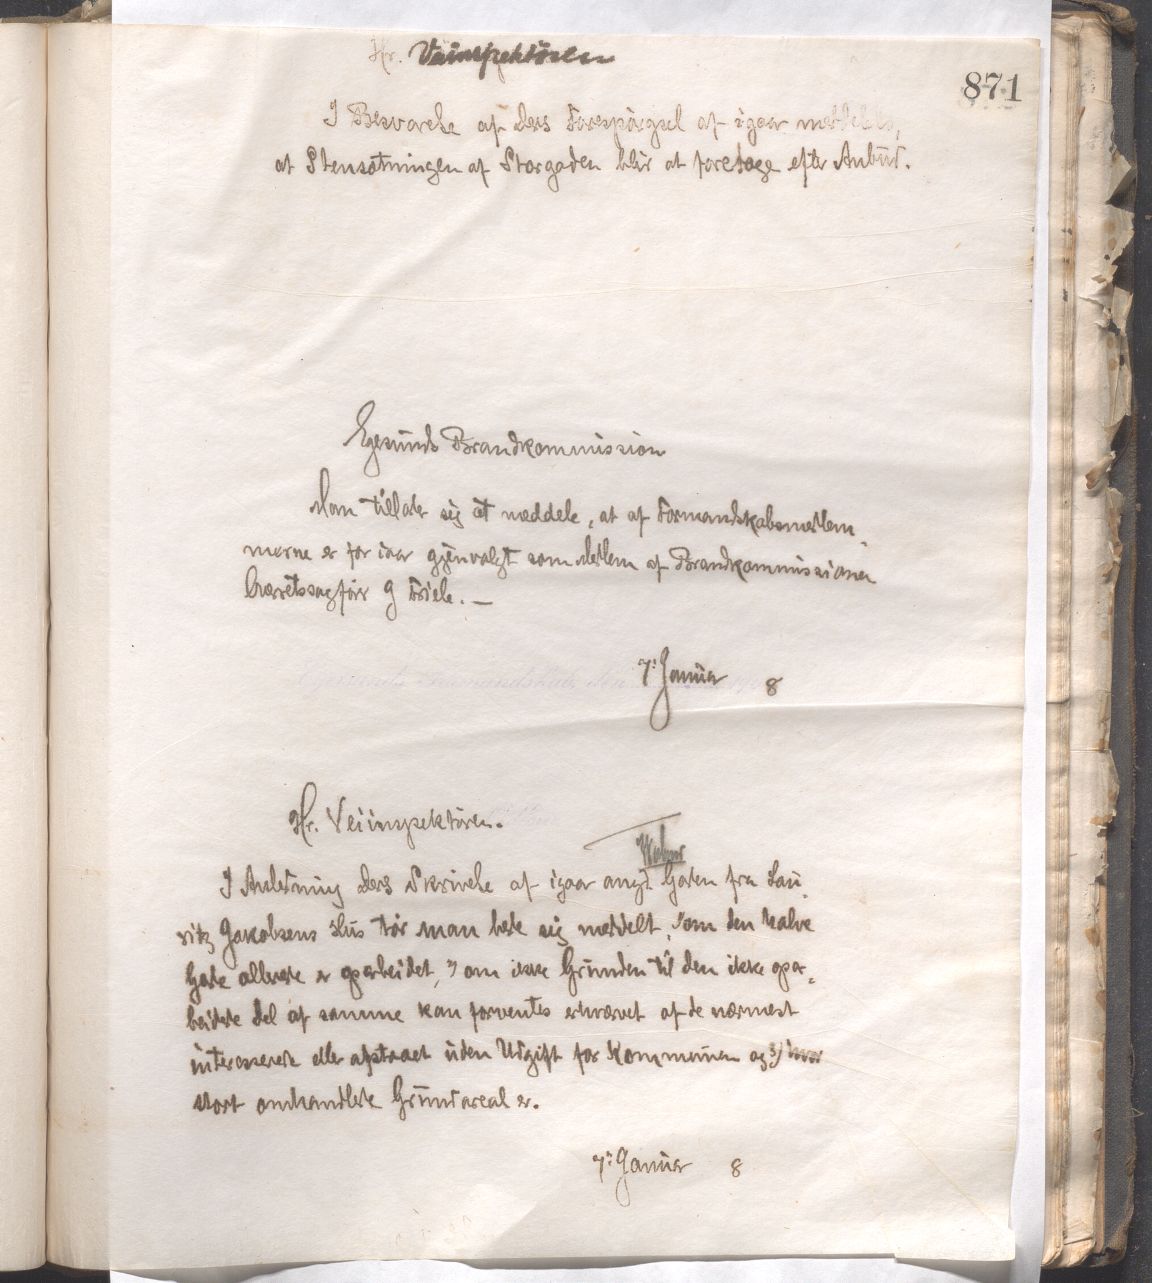 871
Hr. Veiinspektören
I Besvarelse af Deres Forespörgsel af igaar meddeles,
at Stensætningen af Storgaden blir at foretage efter Anbud.
Egersunds Brandkommission
Man tillader sig at meddele, at af Formandskabsmedlem-
merne er for iaar gjenvalgt som Medlem af Brandkommissionen
Overretssagförer G Friele. —
7' Januar 8
Hr. Veiinspektören.
I Anledning Deres Skrivelse af igaar angd. Gaden fra Lau-
ritz Jakobsens Hus tör man bede sig meddelt, 1) om den halve
Gade allerede er oparbeidet, 2) om ikke Grunden til den ikke opar-
beidede Del af samme kan forventes erhvervet af de nærmest
interesserede eller afstaaet uden Udgift for Kommunen og 3) hvor
stort omhandlede Grundareal er.
7' Januar 8